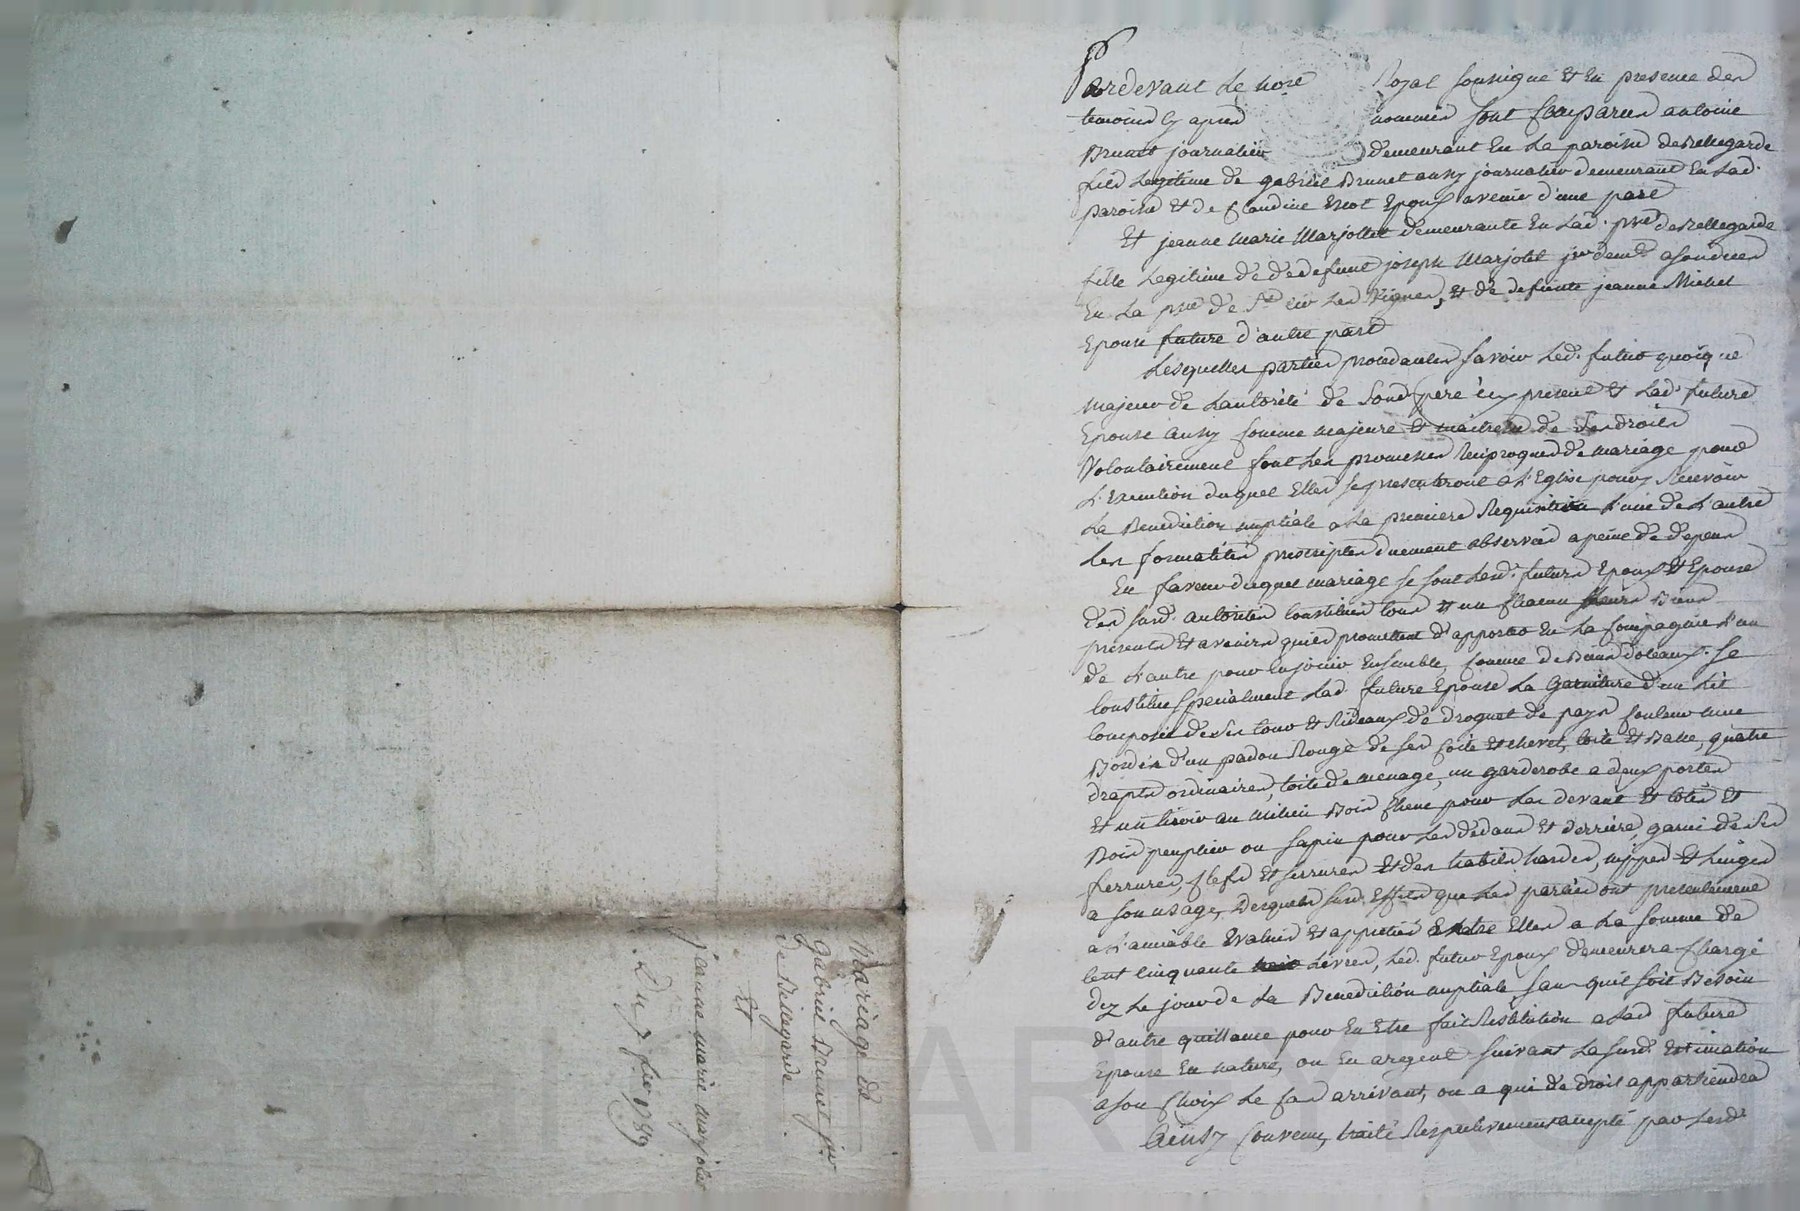 Pardevant Le nore Royal soussigné Et En presence des
temoins Cy apres nommés sont Comparus antoine
Brunet journalier demeurant En La paroisse de Bellegarde
fils Legitime de gabriel Brunet aussy journalier demeurant En Lad.
paroisse Et de Claudine Epoux avenir d'une part
Et jeanne marie Marjollet demeurante En Lad. prse de Bellegarde
fille Legitime de defunt joseph Marjolet jer demt.
En La prse de St Cir Les Vignes, Et de defunte jeanne Michel
Epouse future d'autre part
Lesquelles parties procedantes savoir Led. futur quoique
majeur de Lautorité de Sond. pere icy present Et Lad. future
Epouse aussy Comme majeure Et maitresse de Ses droits
Volontairement font Les promesses Reciproques de mariage pour
L'Execution duquel Elles se presenteront a L'Eglise pour y Recevoir
La Benediction nuptiale a La premiere Requisition L'une de L'autre
Les formalités prescriptes duement observées a peine de depens
En faveur duquel mariage se sont Lesd. futurs Epoux Et Epouse
des susd. autorités Constitués tous Et un Chacun Leurs Biens
presents Et avenirs quils promettent d'apporter En La Compagnie L'un
de L'autre pour En jouir Ensemble, Comme de Biens doteaux. Se
Constitue Specialment Lad. future Epouse La garniture d'un Lit
Composé de Ses tour Et Rideaux de droguet de pays Couleur
Bordés d'un padou Rouge de Ses Coite Et chevet, toile Et Balle, quatre
draps ordinaires, toile de menage, un garderobe a deux portes
Et un tiroir au milieu Bois Chene pour Les devant Et Cotés Et
Bois peuplier ou sapin pour Les dedans Et derriere, garni de Ses
ferrures, Clefs Et serrures Et des habits hardes, nippes Et Linges
a Son usage, Lesquels susd. Effets que Les parties ont presentement
a L'amiable Evalués Et appretiés Entre Elles a La Somme de
Cent Cinquante Livres, Led. futur Epoux demeurera Chargé
dez Le jour de La Benediction nuptiale sans quil soit Besoin
d'autre quittance pour En Etre fait Restitution a Lad. future
Epouse En nature, ou En argent suivant La susd. Estimation
a son Choix Le Cas arrivant, ou a qui de droit appartiendra
Ainsy Convenu, traité Respectivement accepté par Lesd.
Mariage de
Gabriel Brunet jer
De Bellegarde
Et
jeanne marie marjolet
Du 7 fer 1789